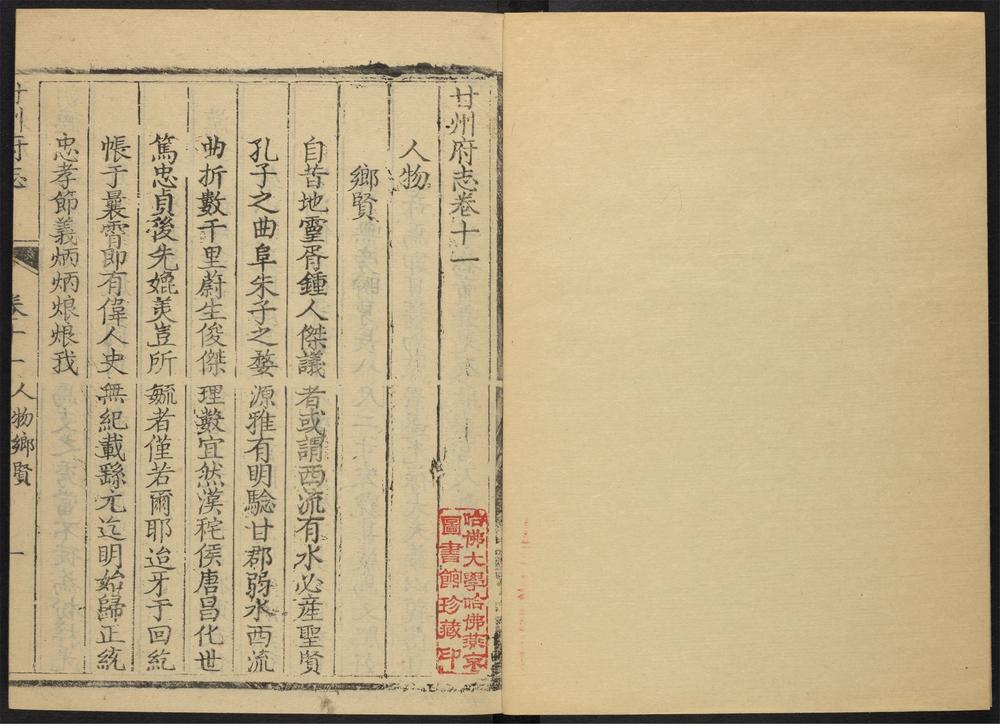 甘州府志卷十一
人物
鄉賢
自昔地靈胥鍾人傑議者或謂西流有水必產聖賢
孔子之曲阜朱子之婺源雅有明驗甘郡弱水西流
曲折數千里蔚生俊傑理數宜然漢秺侯唐昌化世
篤忠貞後先媲美豈所毓者僅若爾耶迨牙于回紇
帳于曩霄即有偉人史無紀載繇元迄明始歸正統
忠孝節義炳炳烺烺我
甘州府志
卷十一
人物鄉賢
一
哈佛大學哈佛燕京
圖書館珍藏印